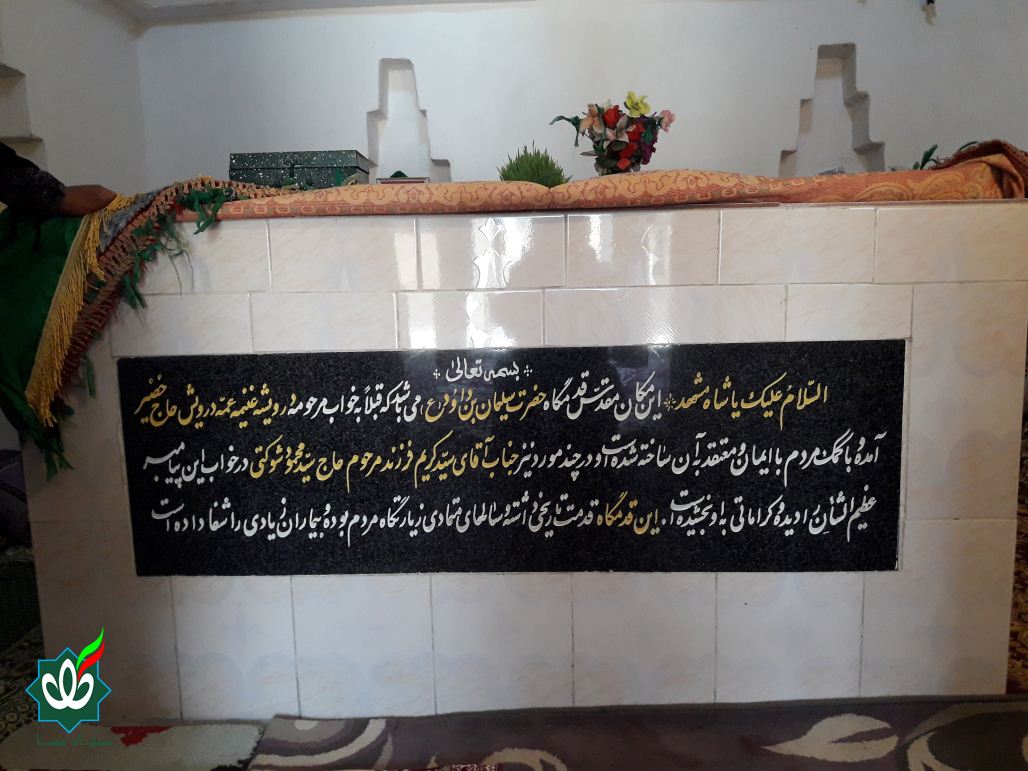 بسمه تعالی
السّلامُ علیک یا شاه مشهد * این مکان مقدّس قدمگاه حضرت سلیمان بن داوُد(ع) می باشد که قبلاً به خواب مرحومه درویشه غنیمه عمه درویش حاج خضیر
آمده و با کمک مردم با ایمان و معتقد به آن ساخته شده است و در چند مورد نیز جناب آقای سیّد کریم فرزند مرحوم حاج سیّد محمود شوکتی در خواب این پیامبر
عظیم الشأن را دیده و کراماتی به او بخشیده است. این قدمگاه قدمت تاریخی داشته و سالهای متمادی زیارتگاه مردم بوده و بیماران زیادی را شفا داده است